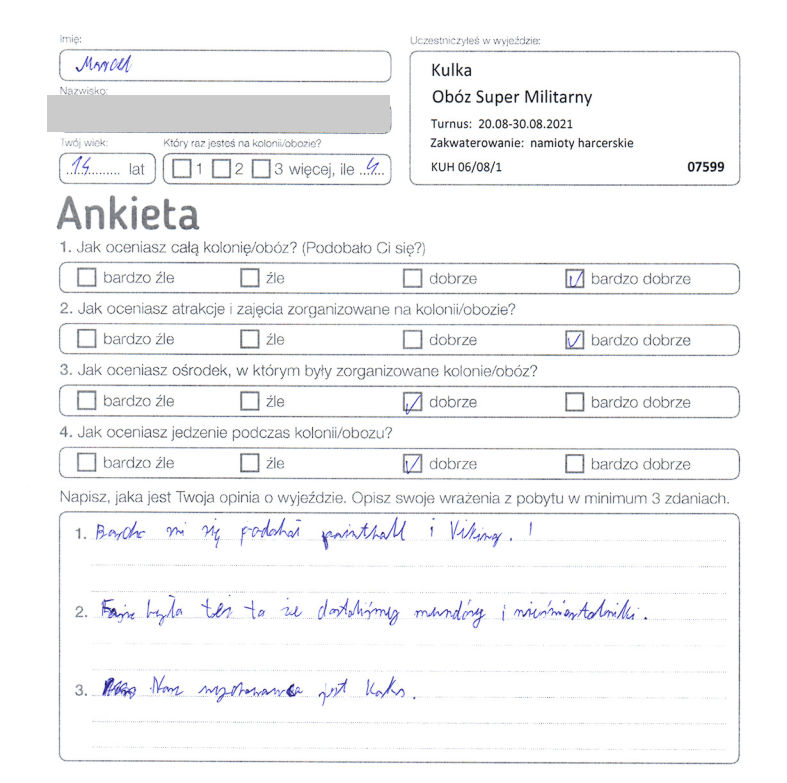 Imię:
Marcel
Nazwisko:
Twój wiek:
14 lat
Który raz jesteś na kolonii/obozie?
1 2 3 więcej, ile 4
Uczestniczyłeś w wyjeździe:
Kulka
Obóz Super Militarny
Turnus: 20.08-30.08.2021
Zakwaterowanie: namioty harcerskie
KUH 06/08/1 07599
Ankieta
1. Jak oceniasz całą kolonię/obóz? (Podobało Ci się?)
bardzo źle źle dobrze bardzo dobrze
2. Jak oceniasz atrakcje i zajęcia zorganizowane na kolonii/obozie?
bardzo źle źle dobrze bardzo dobrze
3. Jak oceniasz ośrodek, w którym były zorganizowane kolonie/obóz?
bardzo źle źle dobrze bardzo dobrze
4. Jak oceniasz jedzenie podczas kolonii/obozu?
bardzo źle źle dobrze bardzo dobrze
Napisz, jaka jest Twoja opinia o wyjeździe. Opisz swoje wrażenia z pobytu w minimum 3 zdaniach.
1. Bardzo mi się podobał paintball i Viking. !
2. była też to że dostaliśmy mundury i nieśmiertelniki.
3. Nasz wychowawca jest